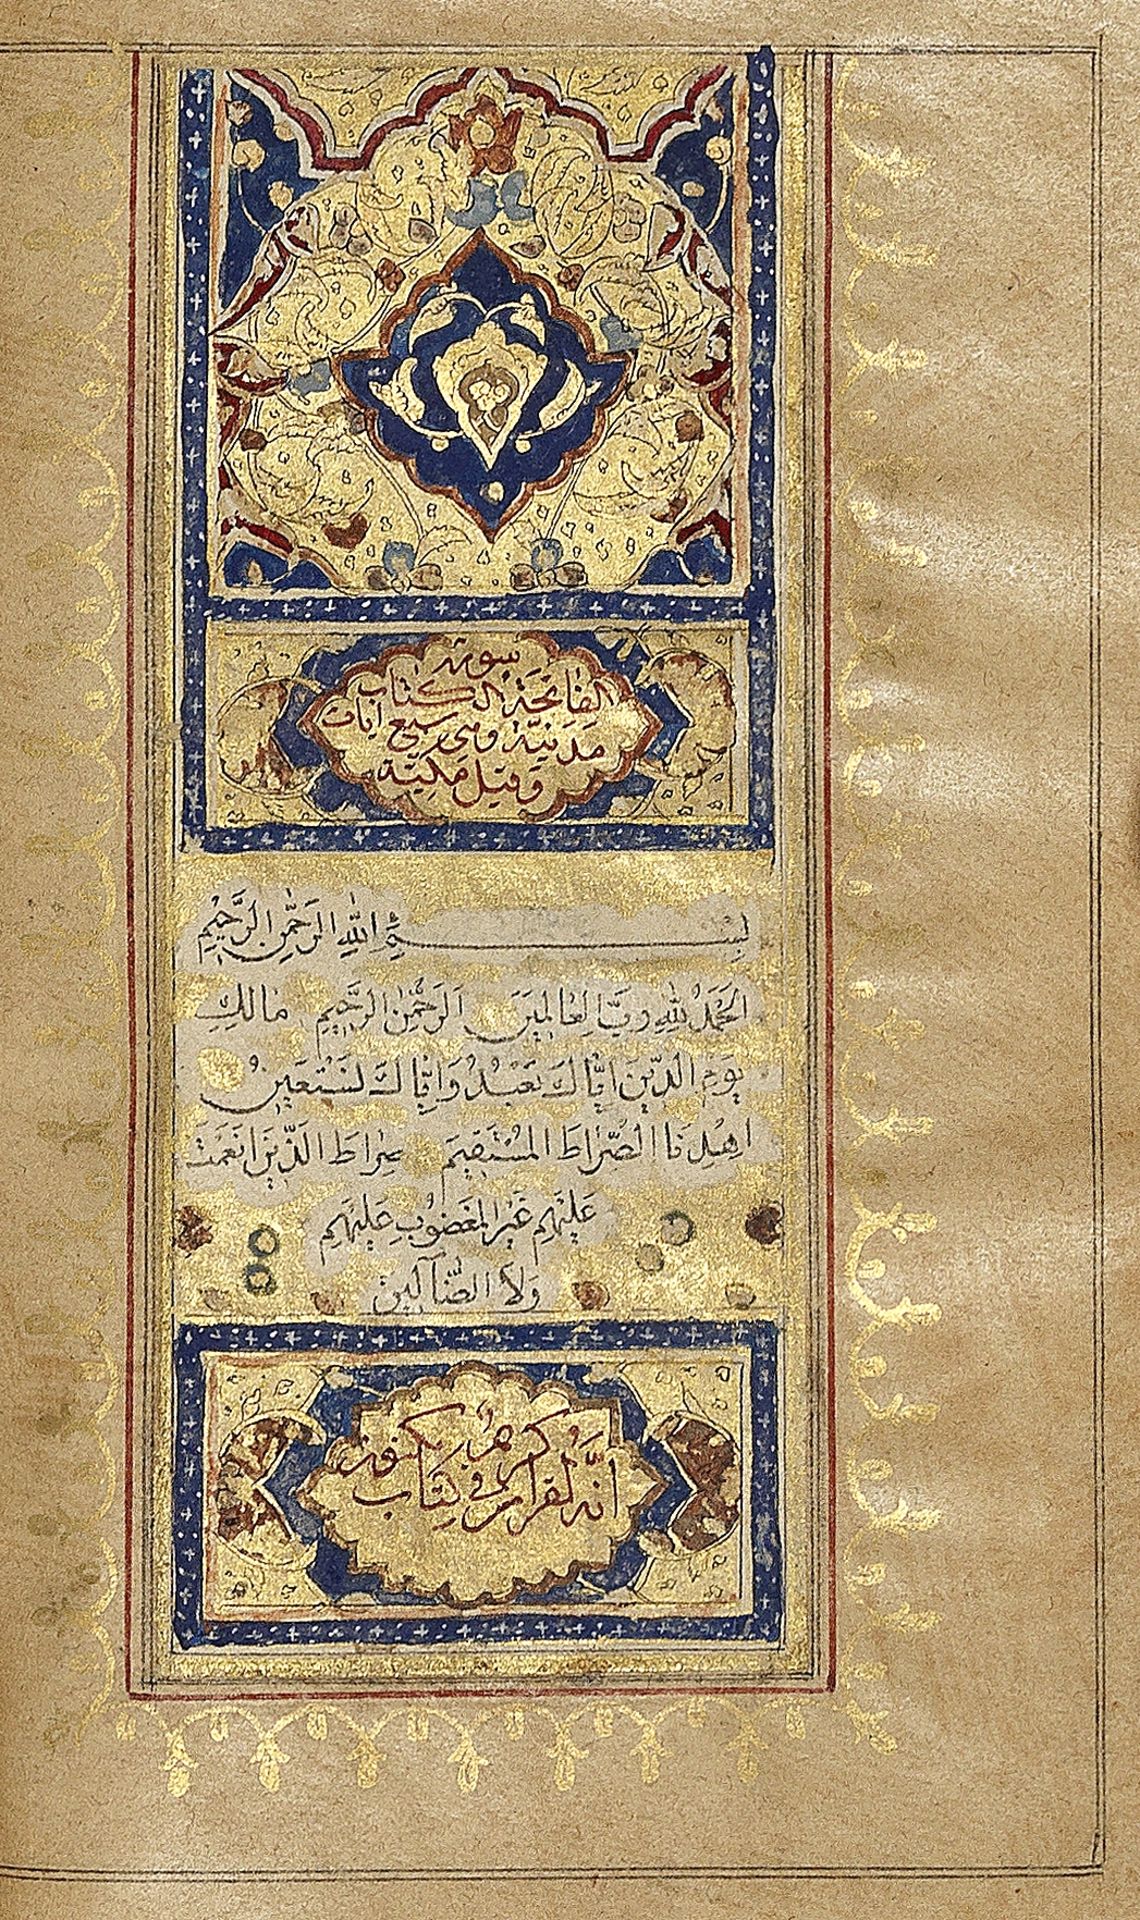 سورة
الفاتحة الكتاب
مدنية وهي سبع ايات
وقيل مكية
بِسْمِ اللّٰهِ الرَّحْمٰنِ الرَّحِيمِ
اَلْحَمْدُ لِلّٰهِ رَبِّ الْعَالَمِينَ اَلرَّحْمٰنِ الرَّحِيمِ مَالِكِ
يَوْمِ الدِّينِ اِيَّاكَ نَعْبُدُ وَاِيَّاكَ نَسْتَعِينُ
اِهْدِنَا الصِّرَاطَ الْمُسْتَقِيمَ صِرَاطَ الَّذِينَ اَنْعَمْتَ
عَلَيْهِمْ غَيْرِ الْمَغْضُوبِ عَلَيْهِمْ
وَلَا الضَّآلِّينَ
انه لقران كريم في كتاب مكنون